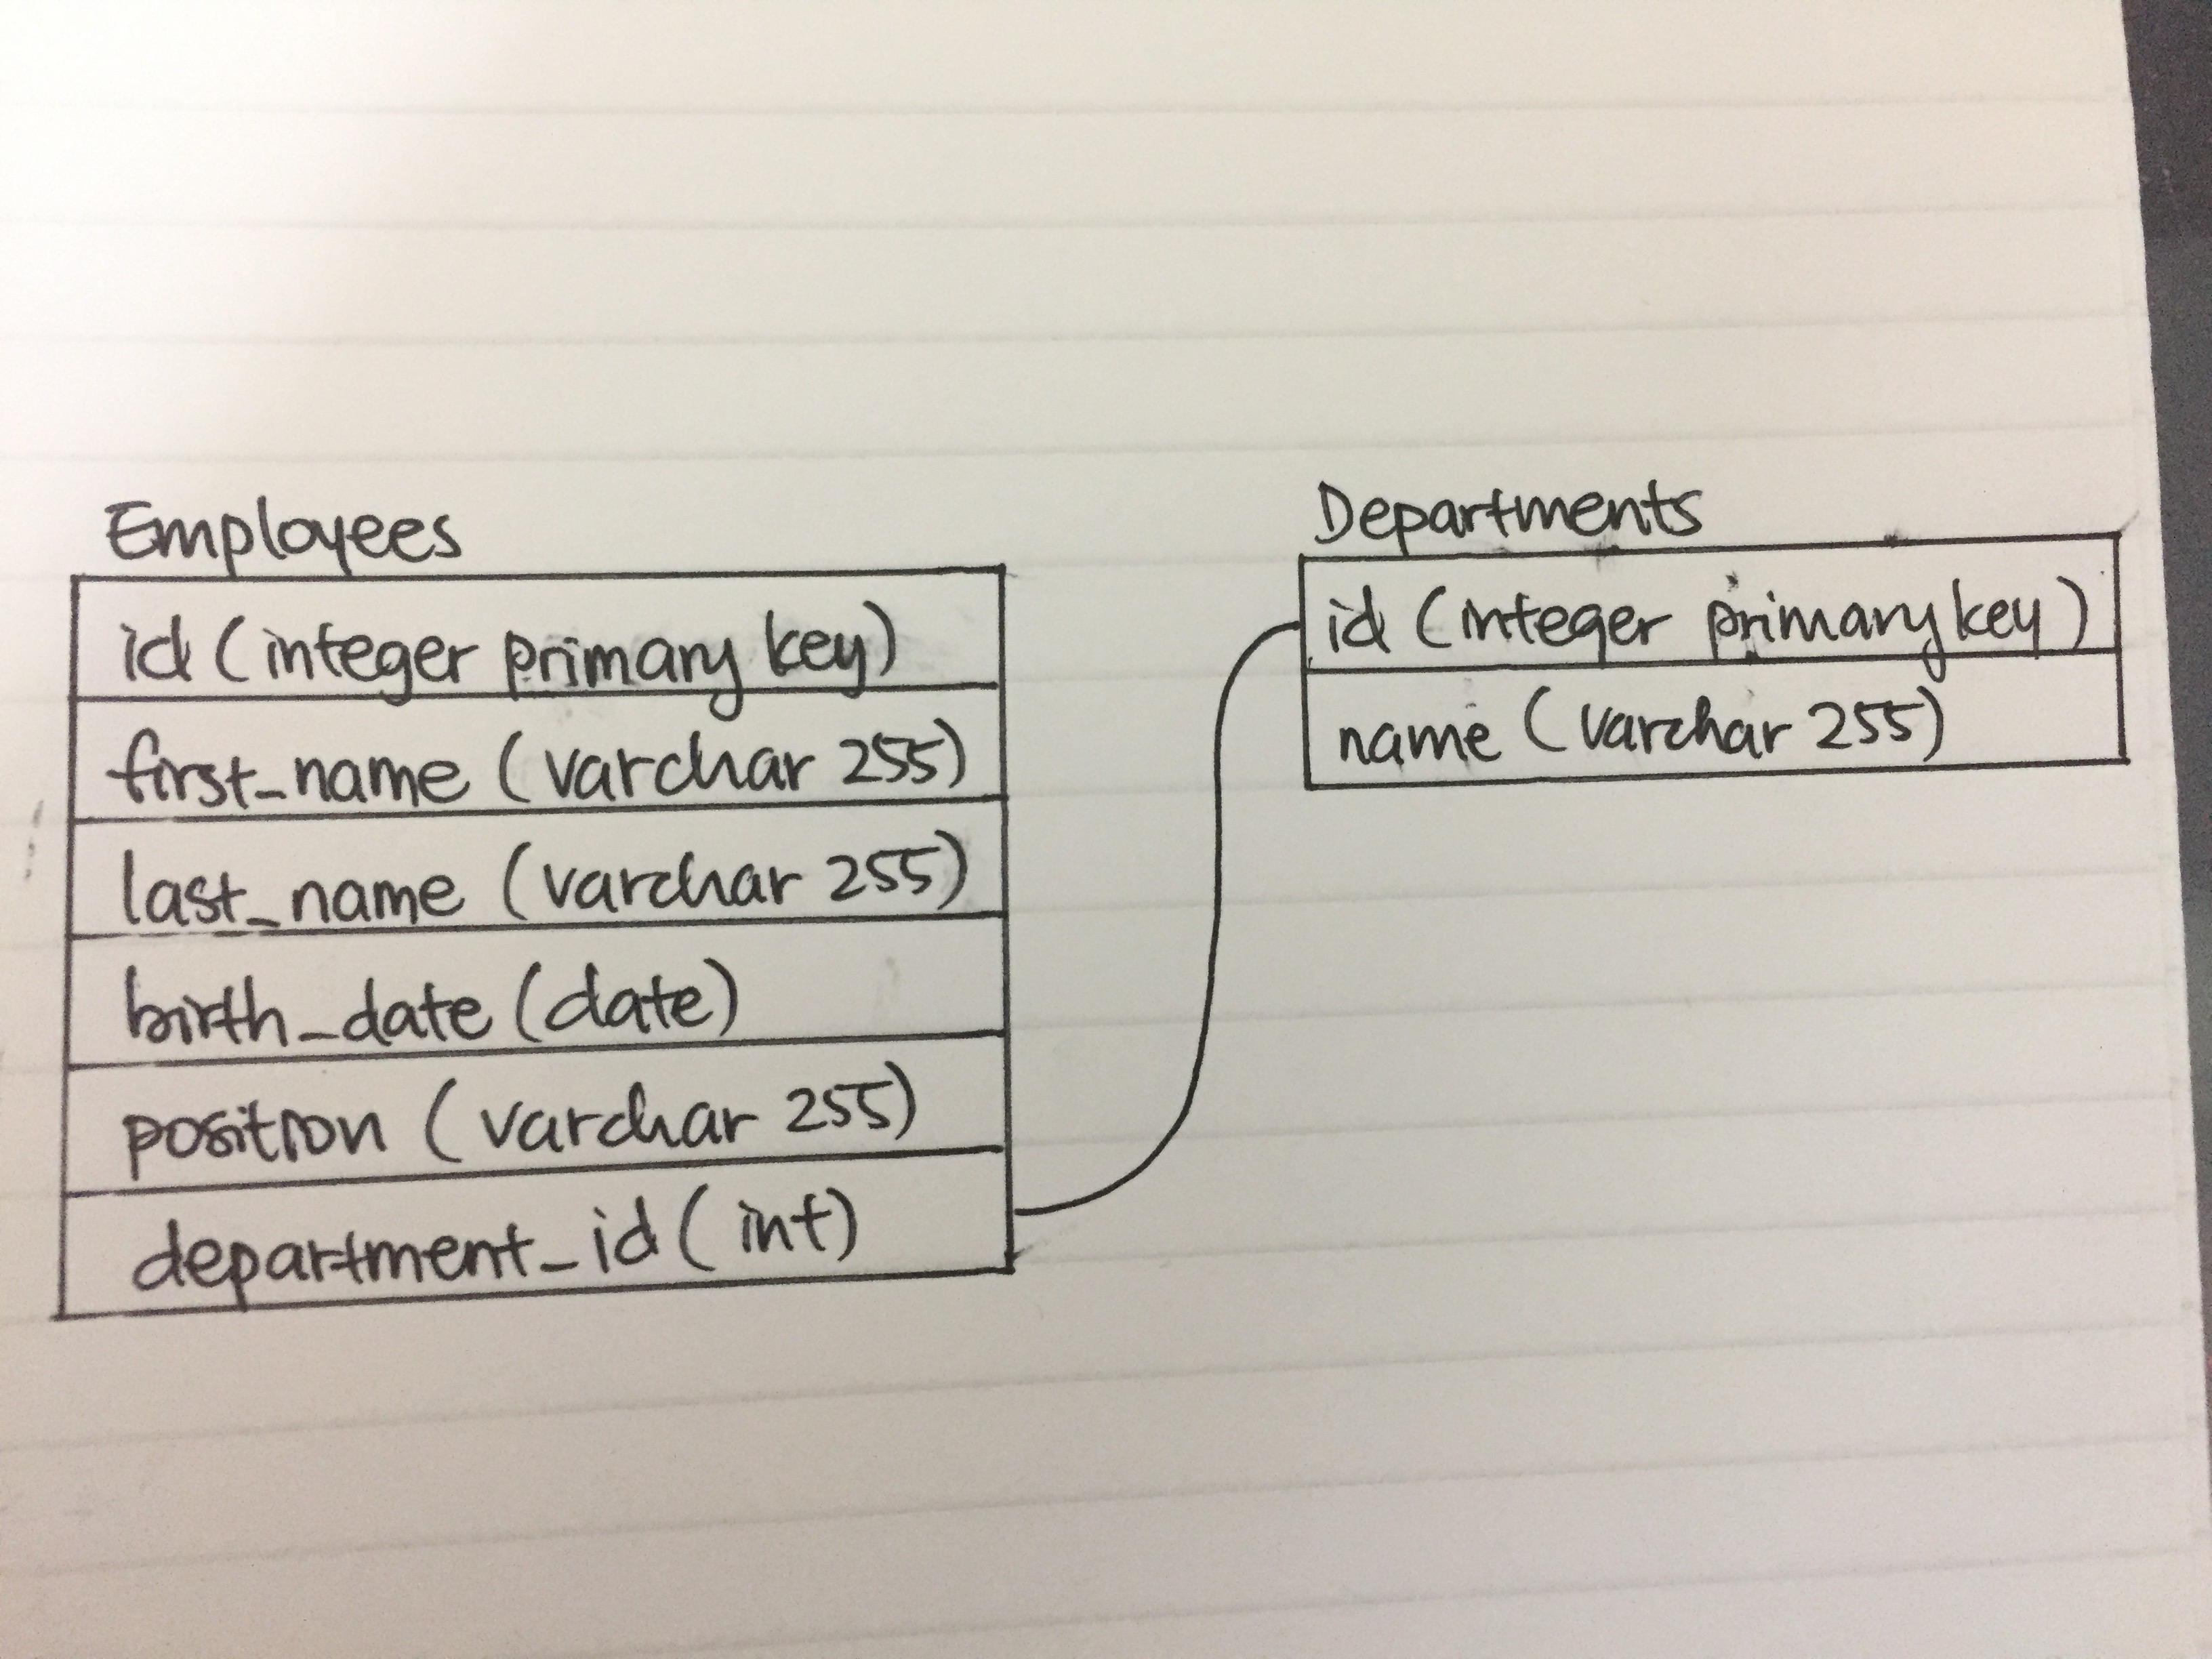 Employees
id (integer primary key)
first_name (varchar 255)
last_name (varchar 255)
birth_date (date)
position (varchar 255)
department_id (int)
Departments
id (integer primary key)
name (varchar 255)